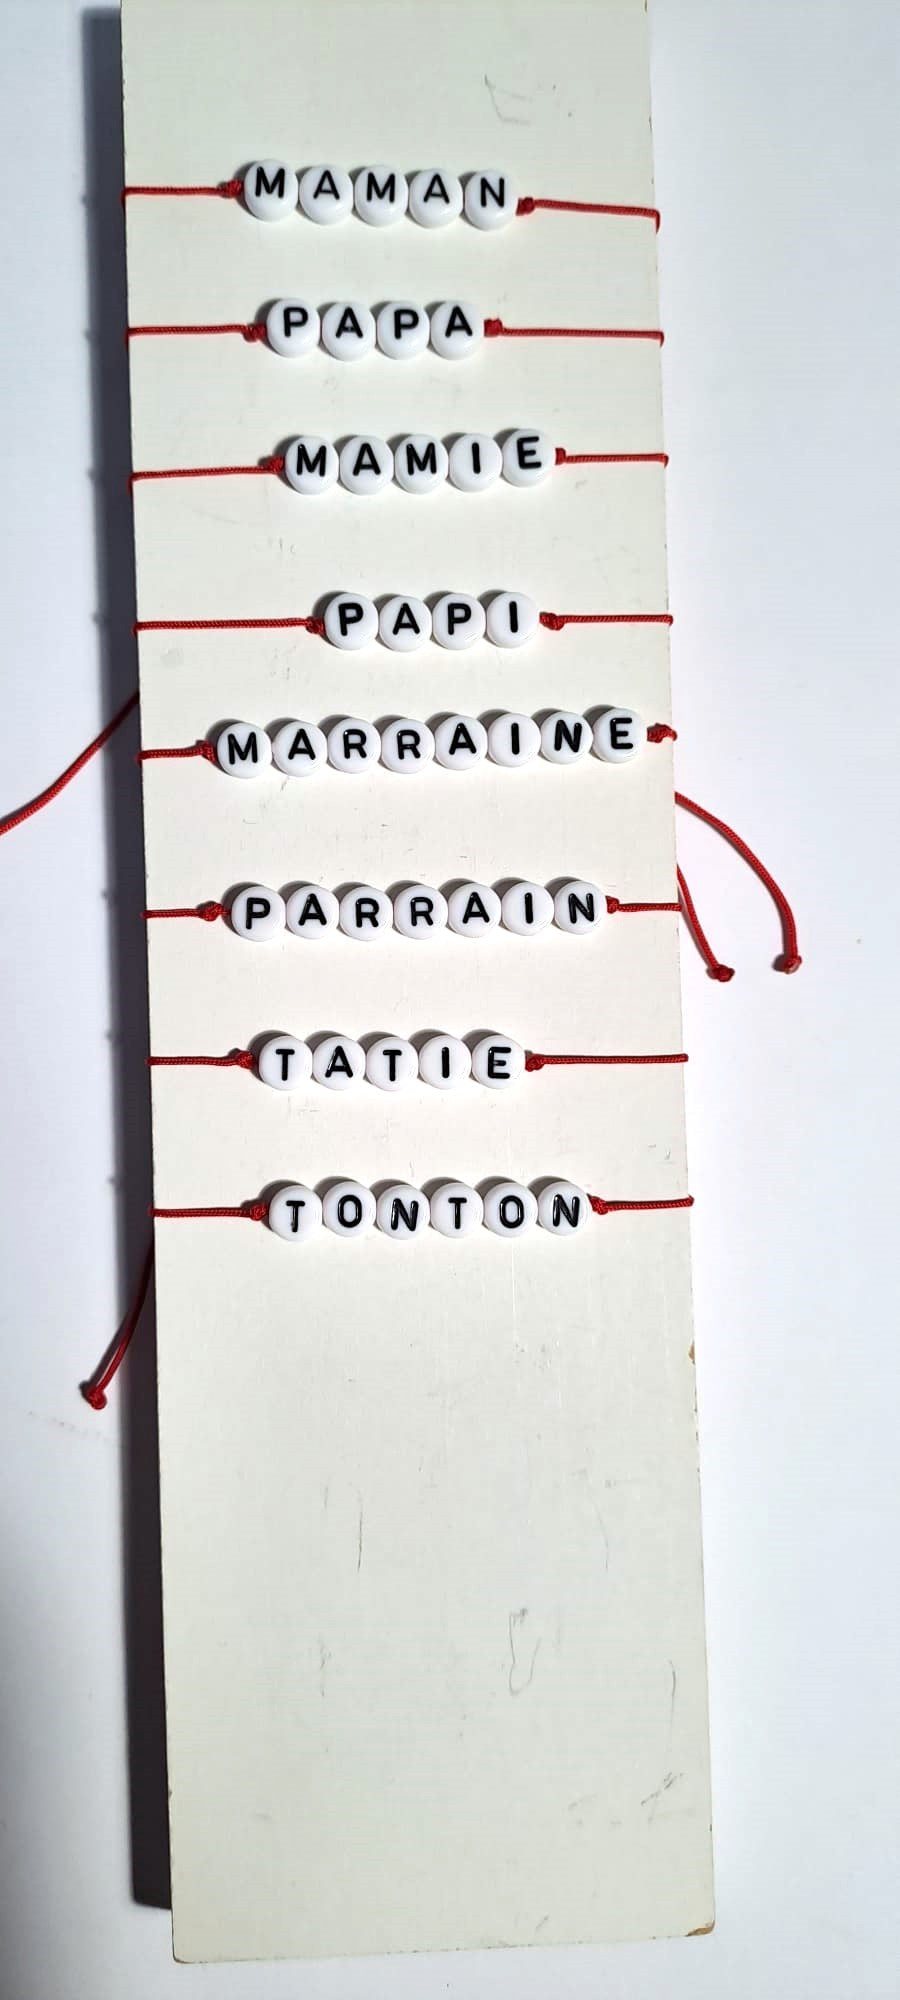 MAMAN
PAPA
MAMIE
PAPI
MARRAINE
PARRAIN
TATIE
TONTON